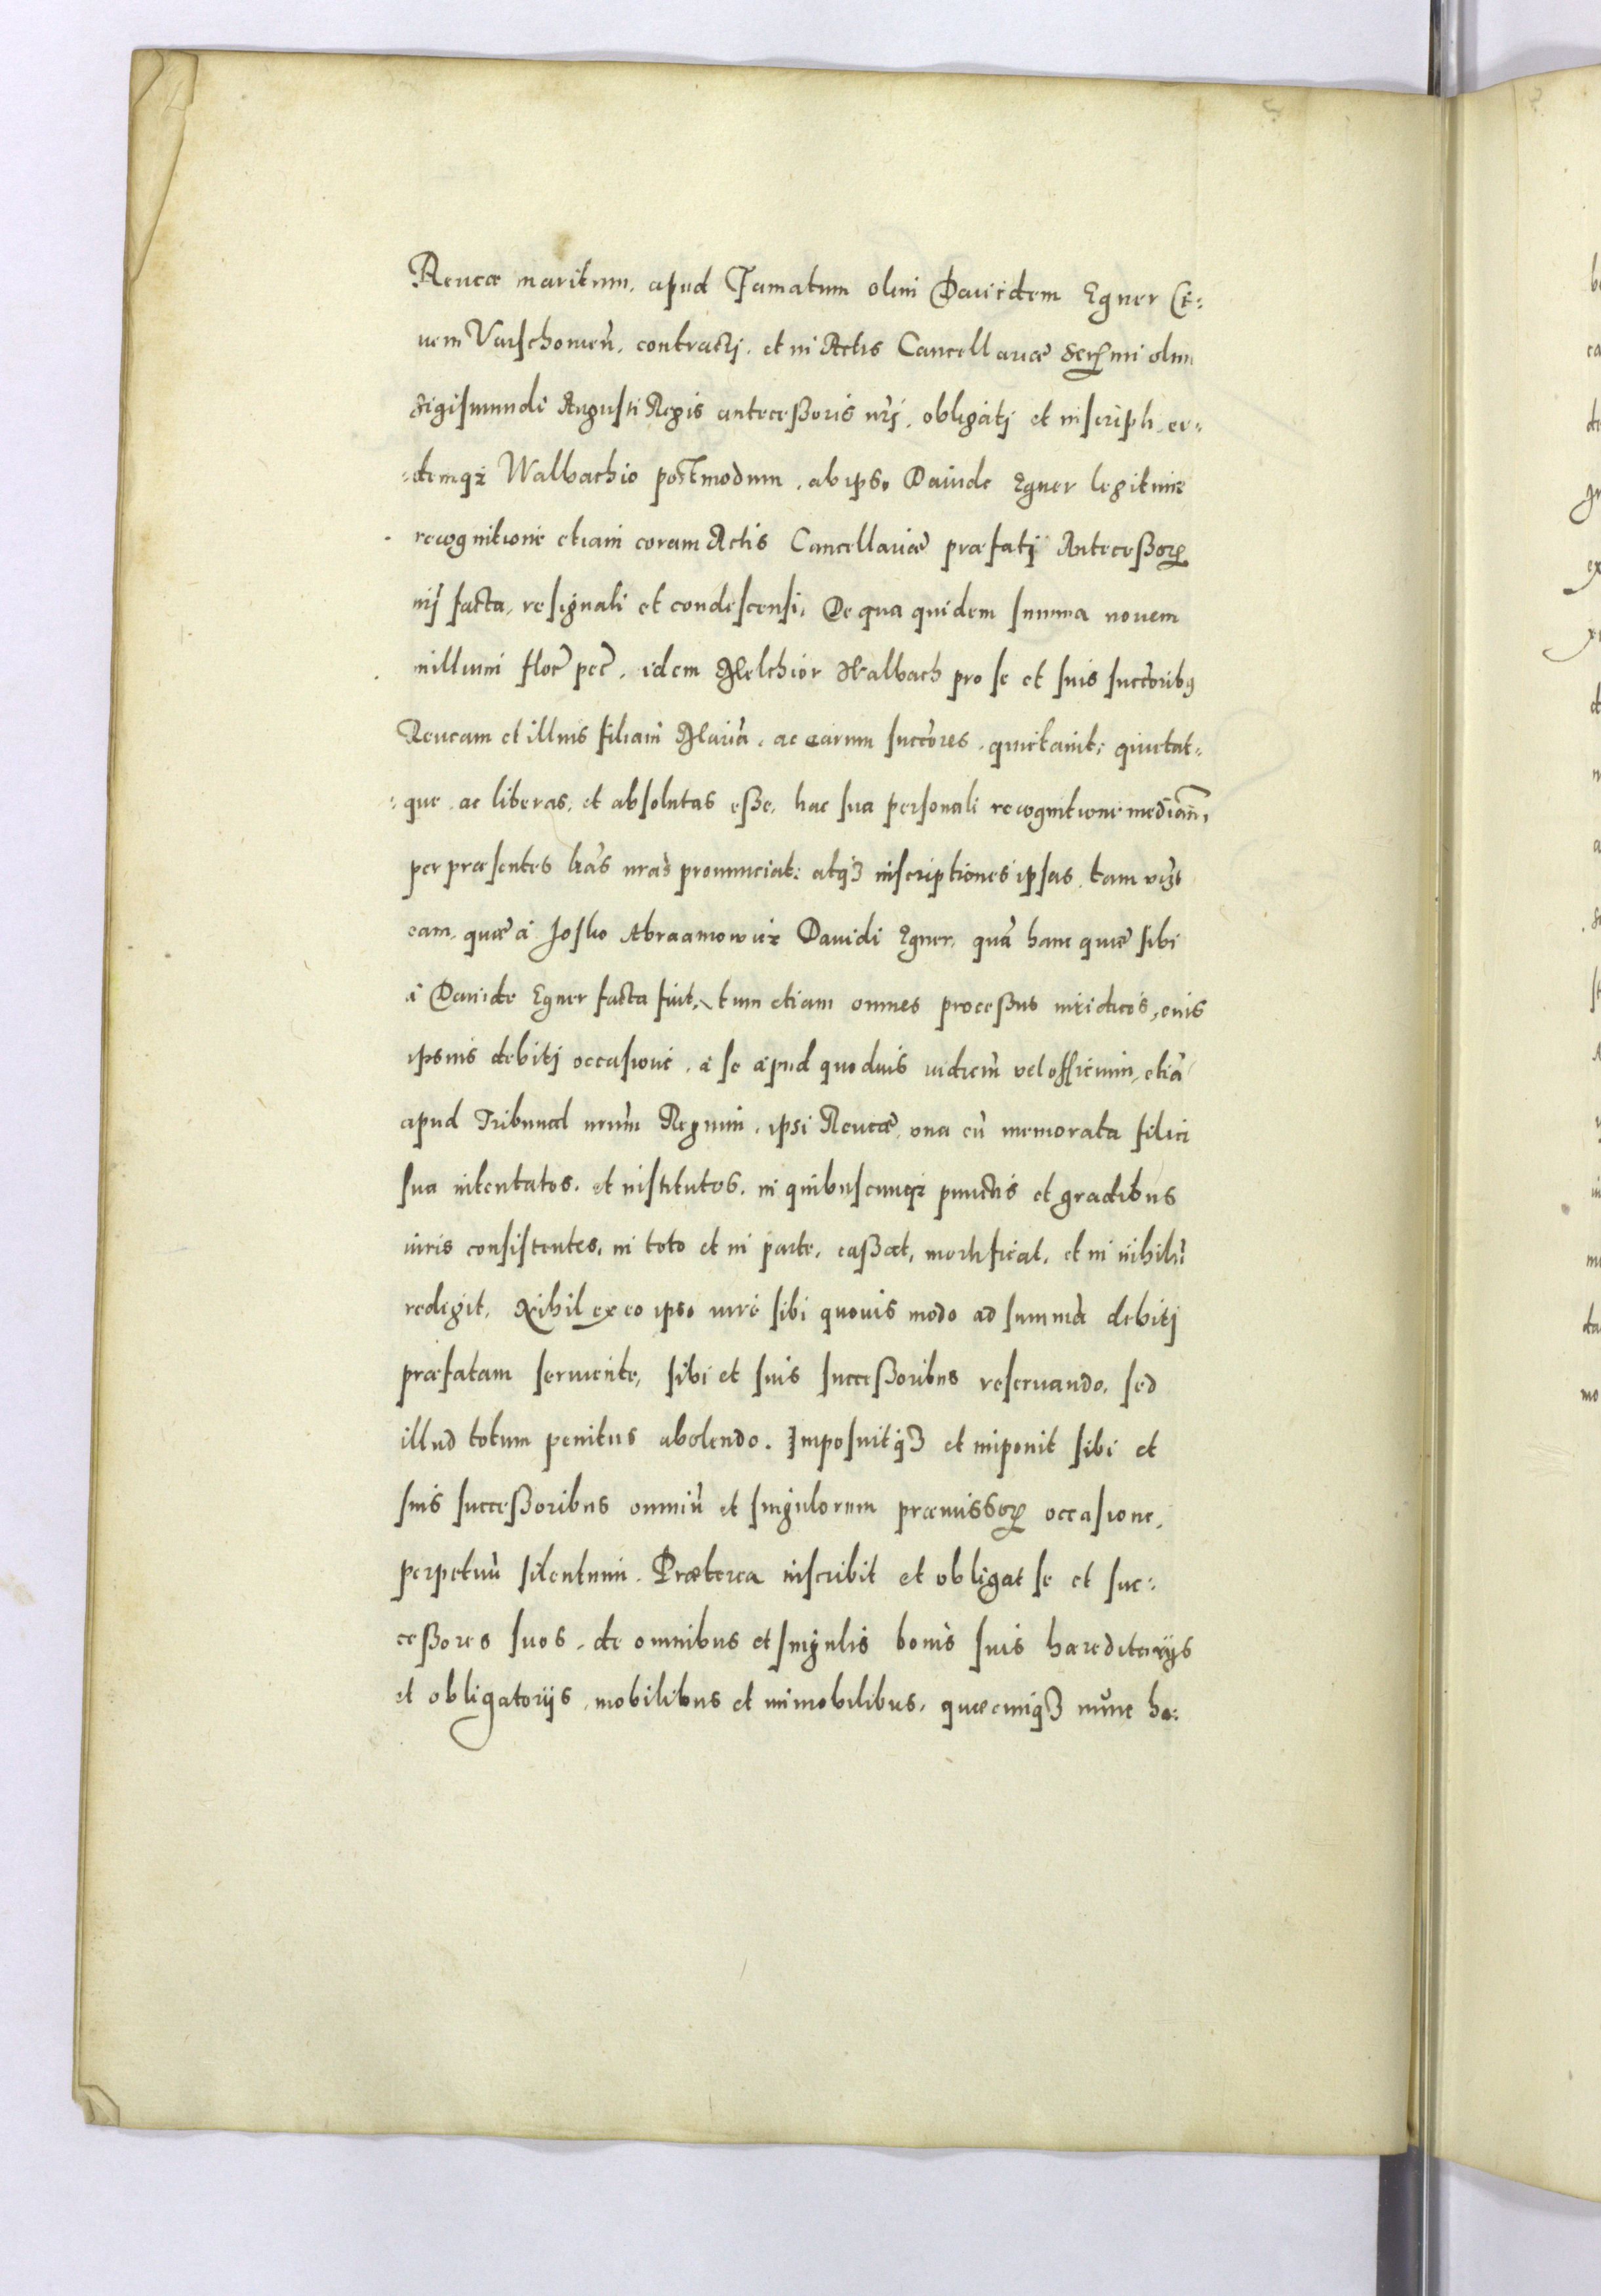 Reucæ maritum, apud Famatum olim Dauidem Egner Ci=
uem Varschouien̄. contractj, et in Actis Cancellariæ Serꝫmi olim
Sigismundi Augusti Regis antecessoris nr̃j, obligatj et inscripti, ei=
=demq₃ Walbachio postmodum, ab ipso Dauide Egner legitime
recognitione etiam coram Actis Cancellariæ præfatj Antecessorꝫ
nr̃j facta, resignati et condescensi, De qua quidem summa nouem
millium floc̃ pec̃, idem Melchior Walbach pro se et suis succ̃oribꝯ
Reucam et illius filiam Mariā, ac earum succ̃ores, quietauit, quietat=
=que ac liberas, et absolutas esse, hac sua personali recognitione median̄,
per præsentes lr̃as nr̃as pronunciat: atq₃ inscriptiones ipsas, tam vi₃t
eam, quæ à Josko Abraamowicz Dauidi Egner, quā hanc quæ sibi
à Dauide Egner facta fuit, tum etiam omnes processus iuridicos, eius
ipsius debitj occasione, à se apud quoduis iudiciū vel officium, etiā
apud Tribunal nrūm Regium, ipsi Reucæ, vna cū memorata filia
sua intentatos, et institutos, in quibuscunq₃ punctis et gradibus
iuris consistentes, in toto et in parte, cassat, mortificat, et in nihilū
redegit, Nihil ex eo ipso iure sibi quouis modo ad summā debitj
præfatam seruiente, sibi et suis successoribus reseruando, sed
illud totum penitus abolendo. Imposuitq₃ et imponit sibi et
suis successoribus omniū et singulorum præmissorꝫ occasione,
perpetuū silentium. Præterea inscribit et obligat se et suc=
cessores suos, de omnibus et singulis bonis suis hæreditarijs
et obligatorijs, mobilibus et immobilibus, quæcunq₃ nunc ha=